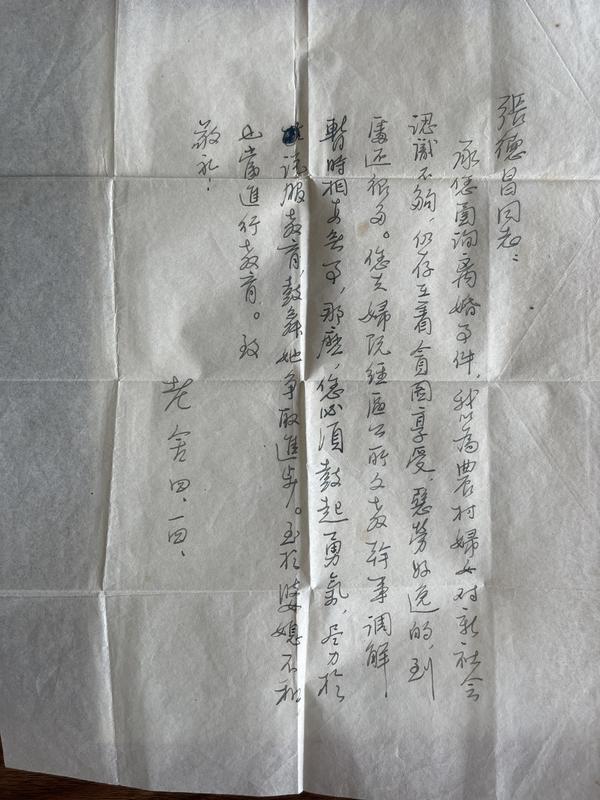 張德昌同志：
承您函詢離婚事件，我以為農村婦女对新社会
認識不夠，仍存在着貪图享受，惡劳好逸的，到
處还很多。您夫婦既經區公所文教幹事調解，
暫時相安無事，那麽，您必須鼓起勇氣，尽力於
說服教育，鼓舞她争取進步。至於婆媳不和
也當進行教育。致
敬礼！
老舍 四、一四、